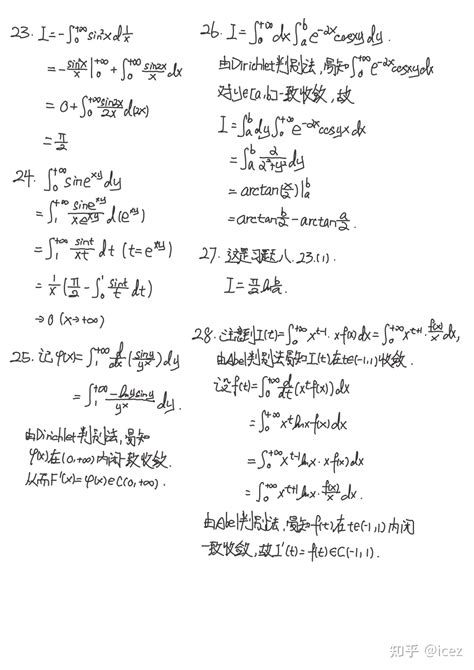 23. I = -∫₀^{+∞} sin²x d(1/x)
= -sin²x/x |₀^{+∞} + ∫₀^{+∞} sin2x/x dx
= 0 + ∫₀^{+∞} sin2x/2x d(2x)
= π/2
24. ∫₀^{+∞} sin e^{xy} dy
= ∫₁^{+∞} sin e^{xy}/(x e^{xy}) d(e^{xy})
= ∫₁^{+∞} sint/(xt) dt (t=e^{xy})
= 1/x (π/2 - ∫₀¹ sint/t dt)
→ 0 (x→+∞)
25. 记 φ(x) = ∫₁^{+∞} d/dx (siny/y^x) dy
= ∫₁^{+∞} -lny siny/y^x dy.
由Dirichlet判别法,易知
φ(x)在(0,+∞)内闭一致收敛.
从而F'(x)=φ(x)∈C(0,+∞).
26. I = ∫₀^{+∞} dx ∫ₐᵇ e^{-2x} cosxy dy.
由Dirichlet判别法,易知∫₀^{+∞} e^{-2x} cosxy dx
对y∈[a,b]一致收敛,故
I = ∫ₐᵇ dy ∫₀^{+∞} e^{-2x} cosyx dx
= ∫ₐᵇ 2/(2²+y²) dy
= arctan(x/2)|ₐᵇ
= arctan b/2 - arctan a/2.
27. 这是习题八. 23.(1)
I = π/2 ln b/a.
28. 注意到I(t) = ∫₀^{+∞} x^{t-1}·xf(x)dx = ∫₀^{+∞} x^{t+1}·f(x)/x dx,
由Abel判别法易知I(t)在t∈(-1,1)收敛.
记f(t) = ∫₀^{+∞} d/dt (x^t f(x)) dx
= ∫₀^{+∞} x^t lnx·f(x)dx
= ∫₀^{+∞} x^{t-1} lnx·xf(x)dx
= ∫₀^{+∞} x^{t+1} lnx·f(x)/x dx.
由Abel判别法,易知f(t)在t∈(-1,1)内闭
一致收敛,故I'(t)=f(t)∈C(-1,1).
知乎 @icez